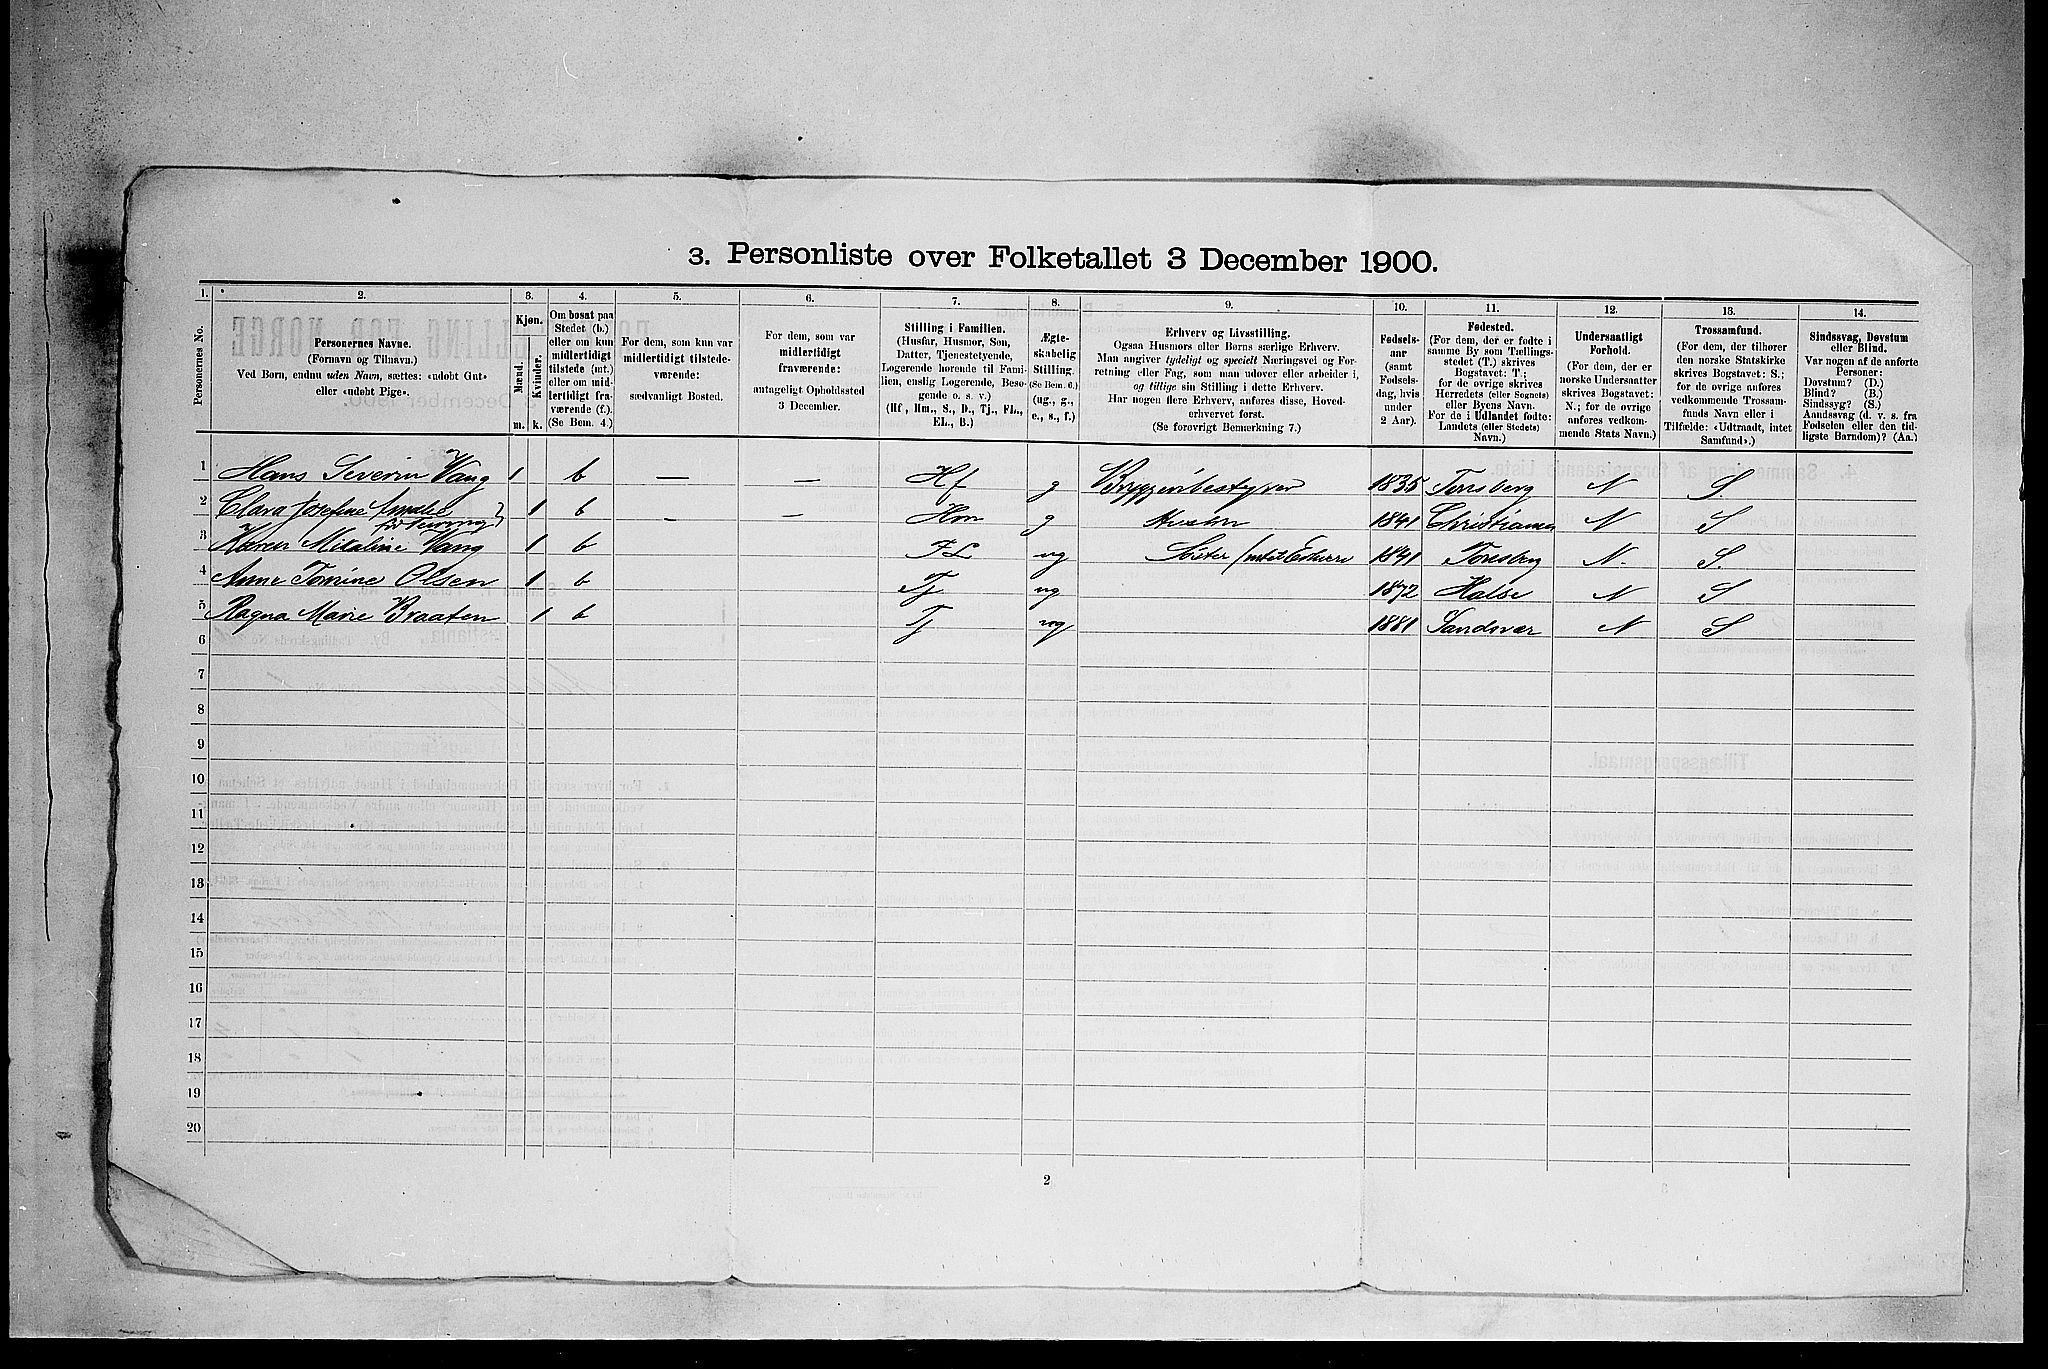 3. Personliste over Folketallet 3 December 1900.
1. 2. 3. 4. 5. 6. 7. 8. 9. 10. 11. 12. 13. 14.
Personernes No.
Personernes Navne.
(Fornavn og Tilnavn.)
Ved Børn, endnu uden Navn, sættes: «udøbt Gut»
eller «udøbt Pige».
Kjøn.
Mænd. Kvinder.
m. k.
Om bosat paa
Stedet (b.)
eller om kun
midlertidigt
tilstede (mt.)
eller om mid-
lertidigt fra-
værende (f.).
(Se Bem. 4.)
For dem, som kun var
midlertidigt tilstede-
værende:
sædvanligt Bosted.
For dem, som var
midlertidigt
fraværende:
antageligt Opholdssted
3 December.
Stilling i Familien.
(Husfar, Husmor, Søn,
Datter, Tjenestetyende,
Logerende hørende til Fami-
lien, enslig Logerende, Besø-
gende o. s. v.)
(Hf, Hm., S., D., Tj., FL.,
EL., B.)
Ægte-
skabelig
Stilling.
(Se Bem. 6.)
(ug., g.,
e., s., f.)
Erhverv og Livsstilling.
Ogsaa Husmors eller Børns særlige Erhverv.
Man angiver tydeligt og specielt Næringsvei og For-
retning eller Fag, som man udøver eller arbeider i,
og tillige sin Stilling i dette Erhverv.
Har nogen flere Erhverv, anføres disse, Hoved-
erhvervet først.
(Se forøvrigt Bemerkning 7.)
Fødsels-
aar
(samt
Fødsels-
dag, hvis
under
2 Aar).
Fødested.
(For dem, der er fødte i
samme By som Tællings-
stedet (T.) skrives
Bogstavet: T.;
for de øvrige skrives
Herredets (eller Sognets)
eller Byens Navn.
For de i Udlandet fødte:
Landets (eller Stedets)
Navn.)
Undersaatligt
Forhold.
(For dem, der er
norske Undersaatter
skrives Bogstavet:
N.; for de øvrige
anføres vedkom-
mende Stats Navn.)
Trossamfund.
(For dem, der tilhører
den norske Statskirke
skrives Bogstavet: S.;
for de øvrige anføres
vedkommende Trossam-
funds Navn eller i
Tilfælde: «Udtraadt, intet
Samfund».)
Sindssvag, Døvstum
eller Blind.
Var nogen af de anførte
Personer:
Døvstum? (D.)
Blind? (B.)
Sindssyg? (S.)
Aandssvag (d. v. s. fra
Fødselen eller den tid-
ligste Barndom)? (Aa.)
1 Hans Severin Wang 1 b — — Hf g Bryggeribestyrer 1835 Tønsberg N S.
2 Clara Josefine Amalie 1 b - - Hm g 1841 Christiania N S
3 Karen Mikaline Wang 1 b FL ug Søster 1841 Tønsberg N. S.
4 Anne Tomine Olsen 1 b Tj ug 1872 Halse N S
5 Ragna Marie Braaten 1 b Tj ug 1881 Sandsvær N S
6
7
8
9
10
11
12
13
14
15
16
17
18
19
20
2